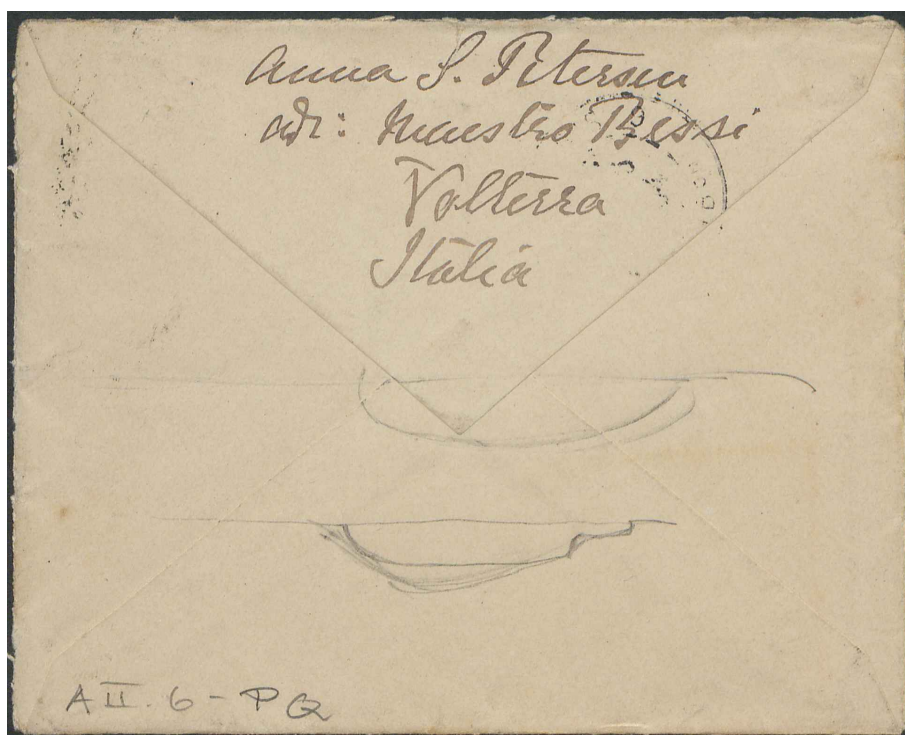 Anna S. Petersen
adr: Maestro Bessi
Volterra
Italia
A II. 6 - PQ